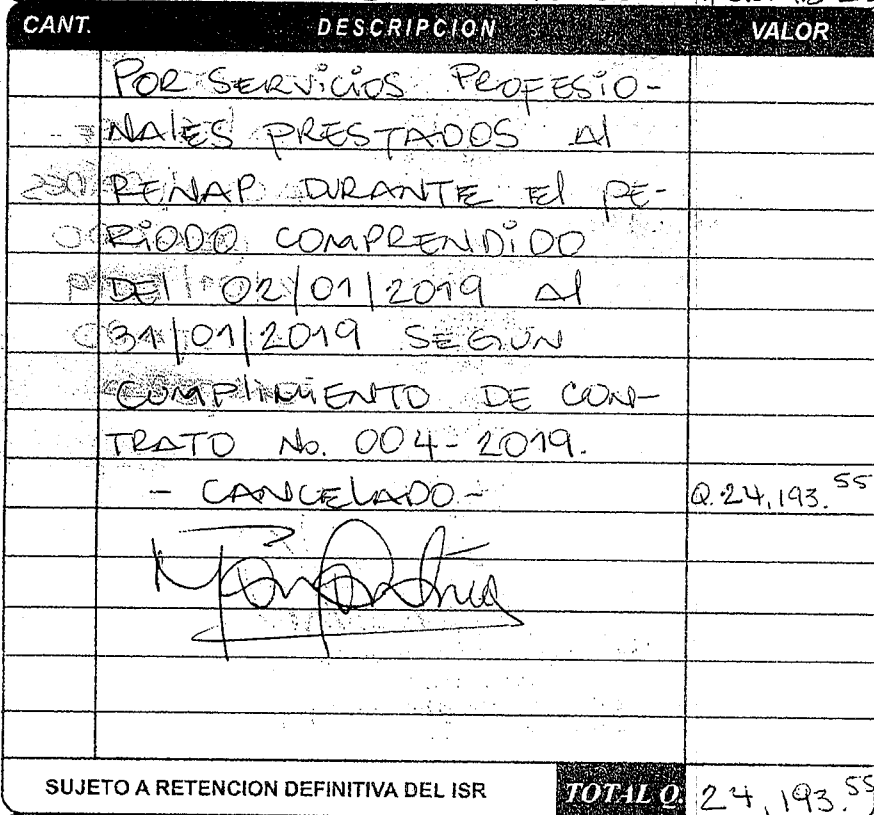 CANT. DESCRIPCION VALOR
POR SERVICIOS PROFESIO-
NALES PRESTADOS Al
RENAP DURANTE El PE-
RIODO COMPRENDIDO
DEl 02/01/2019 Al
31/01/2019 SEGUN
CUMPlIMIENTO DE CON-
TRATO No. 004-2019.
- CANCELADO - Q.24,193.55
SUJETO A RETENCION DEFINITIVA DEL ISR TOTAL Q. 24,193.55